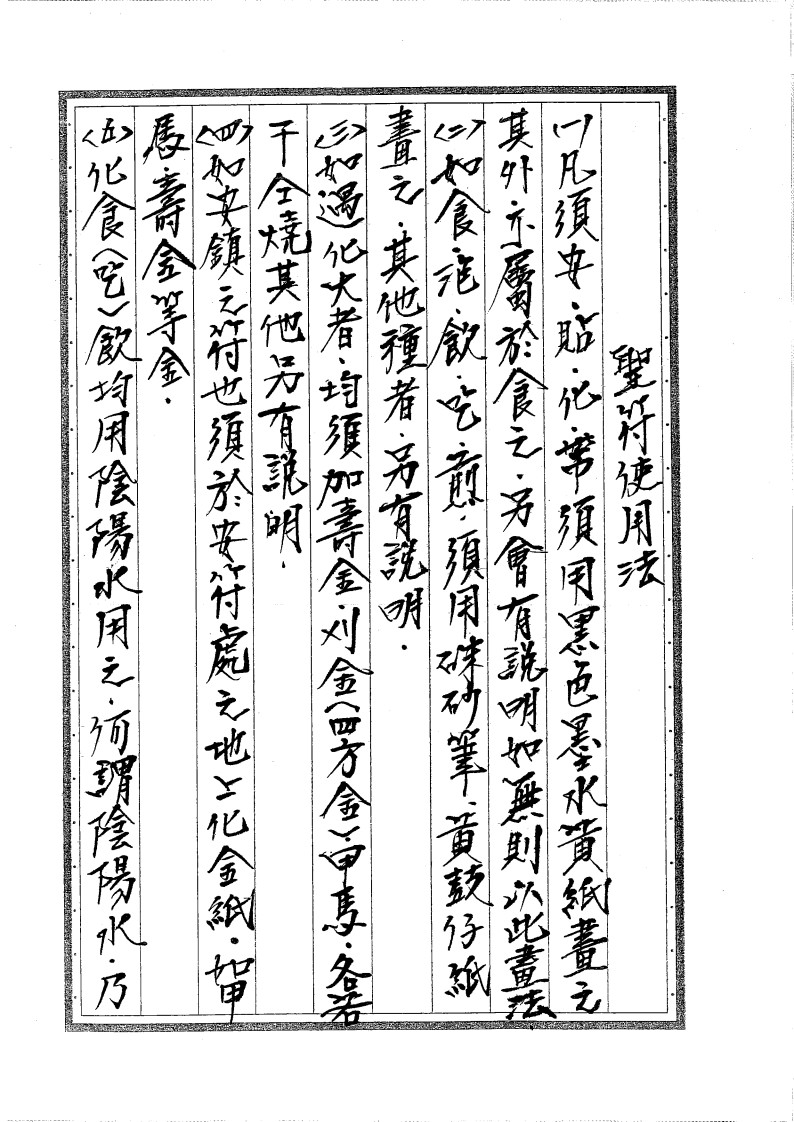 聖符使用法
(一)凡須安．貼．化．帶須用黑色墨水黃紙畫之
其外．亦屬於食之．另會有說明如無則以此畫法
(二)如食．泡．飲．吃．煎．須用硃砂筆、黃鼓仔紙
畫之．其他種者．另有說明．
(三)如遇化大者．均須加壽金．刈金(四方金)甲馬．各若
干仝燒其他另有說明．
(四)如安鎮之符也須於安符處之地上化金紙．如甲
馬．壽金等金．
(五)化食(吃)飲均用陰陽水用之．何謂陰陽水．乃